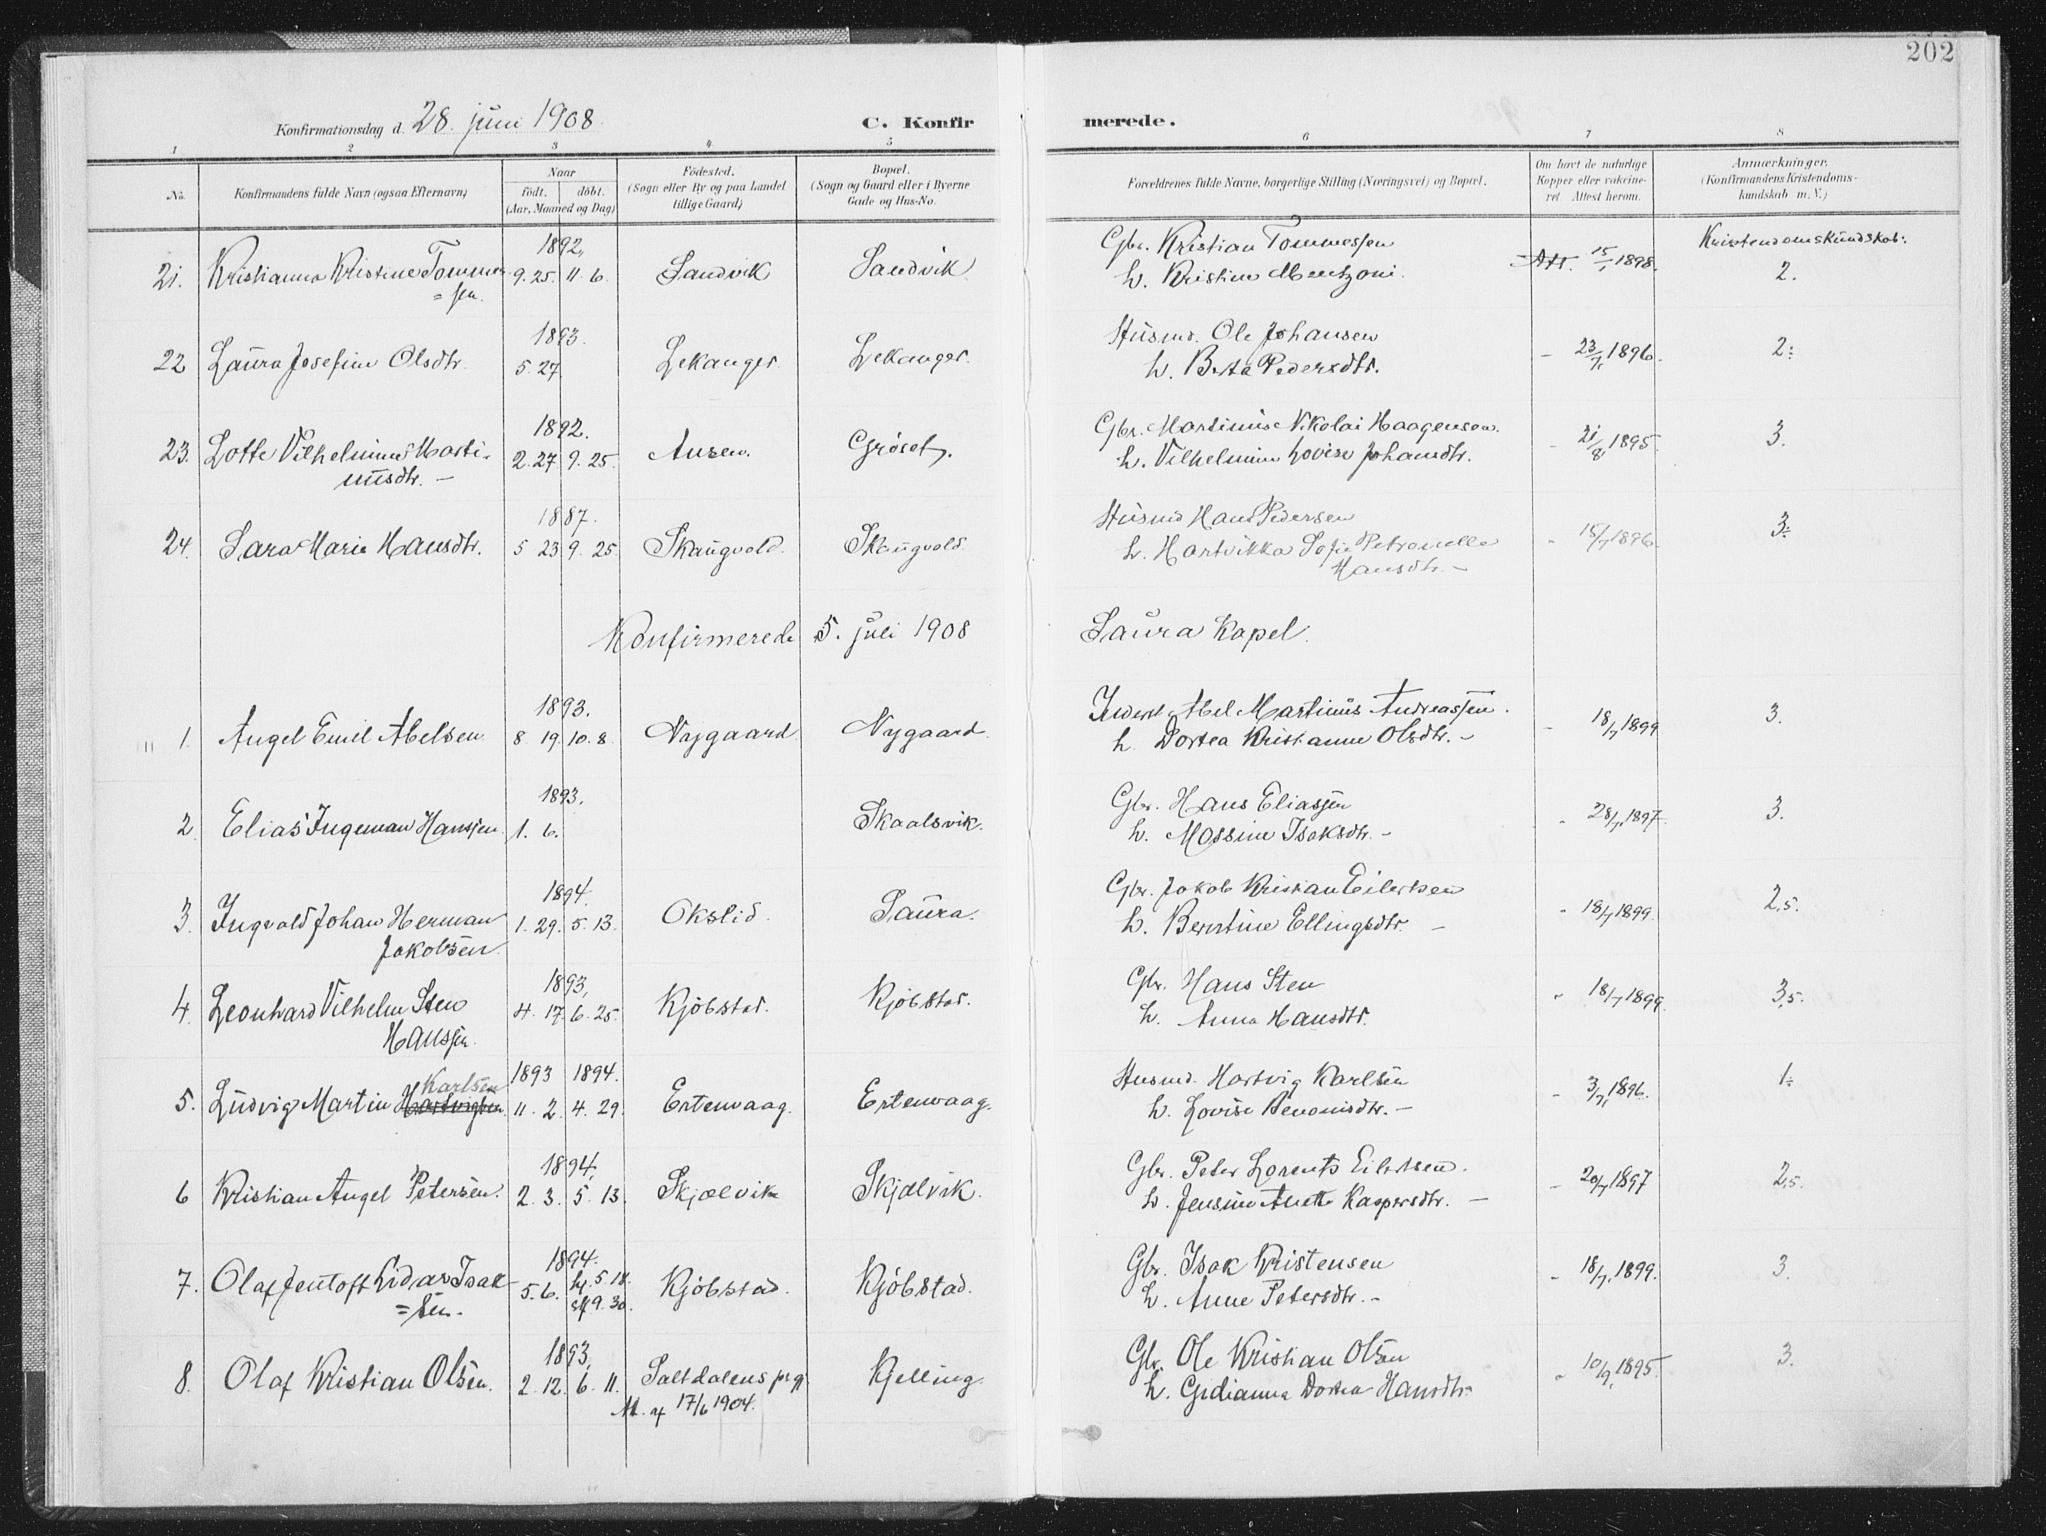 202
Konfirmationsdag d. 28. juni 1908. C. Konfirmerede.
1 2 3 4 5 6 7 8
No. Konfirmandens fulde Navn (ogsaa Efternavn) Naar født. døbt. (Aar, Maaned og Dag) Fødested. (Sogn eller By og paa Landet tillige Gaard) Bopæl. (Sogn og Gaard eller i Byerne Gade og Hus-No. Forældrenes fulde Navne, borgerlige Stilling (Næringsvei) og Bopæl. Om havt de naturlige Kopper eller vakcineret. Attest herom. Anmærkninger. (Konfirmandens Kristendomskundskab m. V.)
1892. Gbr. Kristian Tommessen Kristendomskundskab:
21. Kristianna Kristine Tommes 9. 25. 11. 6. Sandvik Sandvik h. Kristine Mentzoni. Att. 15/1 1898. 2.
=sen.
1893. Husmd. Ole Johansen
22 Laura Josefine Olsdtr. 5. 27 Lekanger Lekanger. h. Berta Pedersdtr. - 23/7 1896. 2÷
1892. Gbr. Martinus Nikolai Haagensen.
23. Lotte Vilhelmine Marti- 2. 27 9. 25. Ansen. Grøset. h. Vilhelmine Lovise Johansdtr. - 21/8 1895. 3.
nusdtr. -
1887. Husmd Hans Pedersen
24. Sara Marie Hansdtr. 5 23 9. 25. Skaugvold. Skaugvold. h. Hartvikka Sofie Petronelle - 15/7 1896. 3÷
Hansdtr. -
Konfirmerede 5. juli 1908 Saura Kapel.
1893. Inderst Abel Martinus Andreassen.
1. Angel Emil Abelsen 8 19. 10. 8. Nygaard Nygaard. h. Dortea Kristianne Olsdtr. - - 18/7 1899 3.
1893. Gbr. Hans Eliassen
2 Elias Ingeman Hanssen 1. 6. Skaalsvik. h. Massine Isaksdtr. - - 28/7 1897. 3.
1894. Gbr. Jakob Kristian Eilertsen
3. Ingvald Johan Herman 1. 29. 5. 13. Okslid. Saura. h. Berntine Ellingsdtr. - - 18/7 1899. 2,5.
Jakobsen.
1893. Gbr. Hans Sten
4. Leonhard Vilhelm Sten 4. 17. 6. 25. Kjøbstad. Kjøbstad. h. Anna Hansdtr. - 18/7 1899. 3,5.
Hanssen.
Karlsen 1893 1894. Husmd. Hartvig Karlsen
5. Ludvig Martin Hartvigsen 11. 2. 4. 29. Ertenvaag. Ertenvaag. h. Lovise Benonisdtr. - - 3/7 1896. 1÷
1894. Gbr. Peter Lorents Eilertsen.
6 Kristian Angel Petersen. 2. 3. 5. 13. Skjælvik Skjælvik. h. Jensine Anette Kaspersdtr. - - 20/7 1897 2,5.
1894. Gbr. Isak Kristensen
7. Olaf Jentoft Lidar Isak 5. 6. hj. 5. 18. Kjøbstad. Kjøbstad. h. Anne Petersdtr. - - 18/7 1899. 3.
=sen. st. 9. 30.
1893. Gbr. Ole Kristian Olsen
8. Olaf Kristian Olsen. 2. 12. 6. 11. Saltdalens prgj. Kjelling. h. Gidianna Dortea Hansdtr. - 10/9 1895. 3.
At. af 17/6 1904.